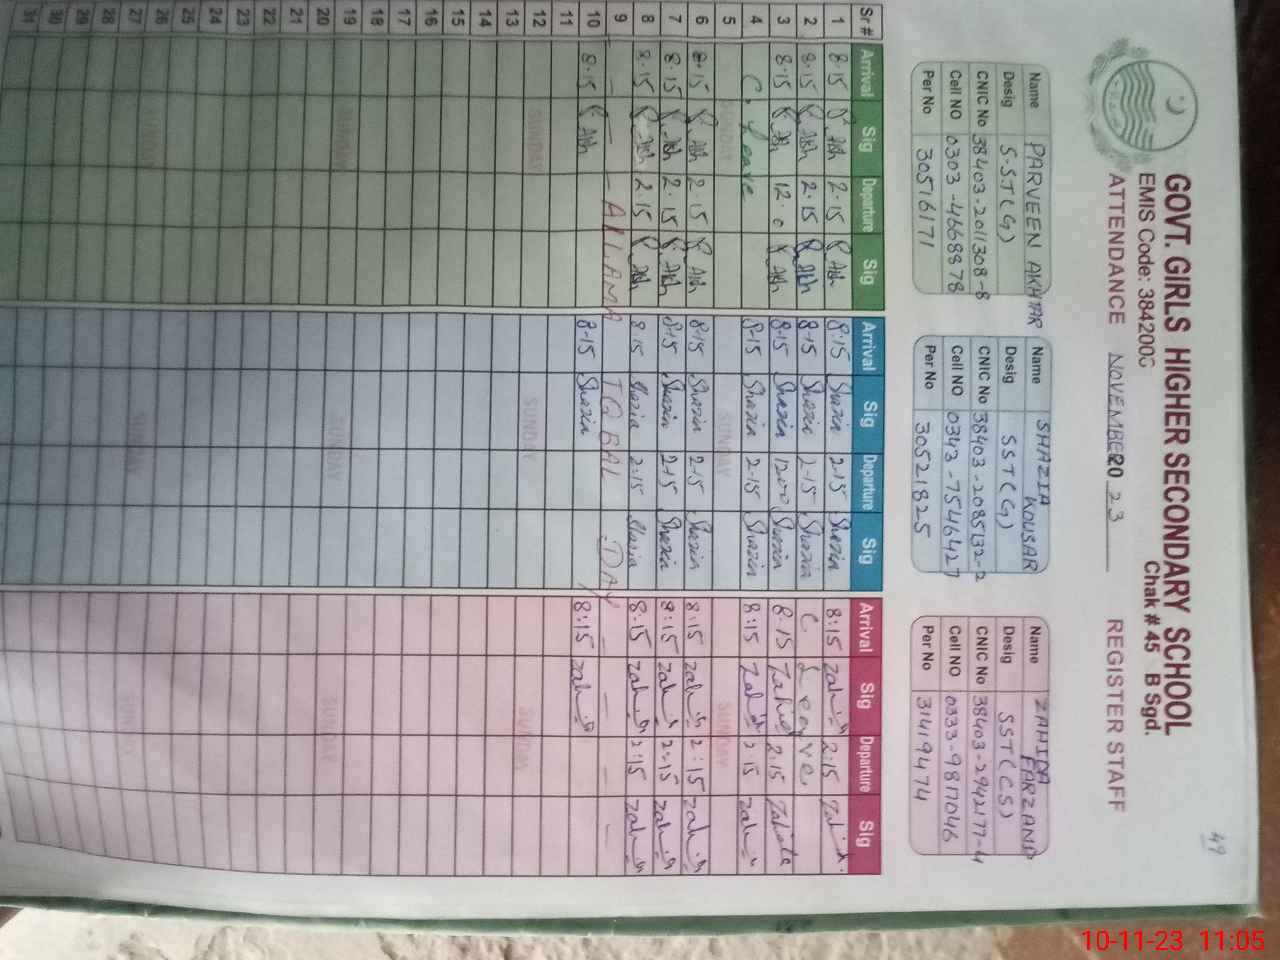 49
GOVT. GIRLS HIGHER SECONDARY SCHOOL
EMIS Code: 3842006 Chak # 45 B Sgd.
ATTENDANCE NOVEMBER 2023 REGISTER STAFF
Name PARVEEN AKHTAR
Desig S.S.T(G)
CNIC No 38403-2011308-8
Cell NO 0303-4668878
Per No 30516171
Name SHAZIA KOUSAR
Desig SST(G)
CNIC No 38403-2085132-2
Cell NO 0343-7546427
Per No 30521825
Name ZAHIDA FARZAND
Desig SST(CS)
CNIC No 38403-2942177-4
Cell NO 0333-9817046
Per No 31419474
Sr # Arrival Sig Departure Sig Arrival Sig Departure Sig Arrival Sig Departure Sig
1 8:15 P. Akh 2:15 P. Akh 8:15 Shazia 2:15 Shazia 8:15 Zahida 2:15 Zahida
2 8:15 P. Akh 2:15 P. Akh 8:15 Shazia 2:15 Shazia C Leave
3 8:15 P. Akh 12:0 P. Akh 8:15 Shazia 12:00 Shazia 8:15 Zahida 2:15 Zahida
4 C. Leave 8:15 Shazia 2:15 Shazia 8:15 Zahida 2:15 Zahida
5 SUNDAY SUNDAY SUNDAY
6 8:15 P. Akh 2:15 P. Akh 8:15 Shazia 2:15 Shazia 8:15 Zahida 2:15 Zahida
7 8:15 P. Akh 2:15 P. Akh 8:15 Shazia 2:15 Shazia 8:15 Zahida 2:15 Zahida
8 8:15 P. Akh 2:15 P. Akh 8:15 Shazia 2:15 Shazia 8:15 Zahida 2:15 Zahida
9 — — — ALLAMA IQBAL DAY — — — —
10 8:15 P. Akh 8:15 Shazia 8:15 Zahida
11
12 SUNDAY SUNDAY SUNDAY
13
14
15
16
17
18
19 SUNDAY SUNDAY SUNDAY
20
21
22
23
24
25
26 SUNDAY SUNDAY SUNDAY
27
28
29
30
31
10-11-23 11:05